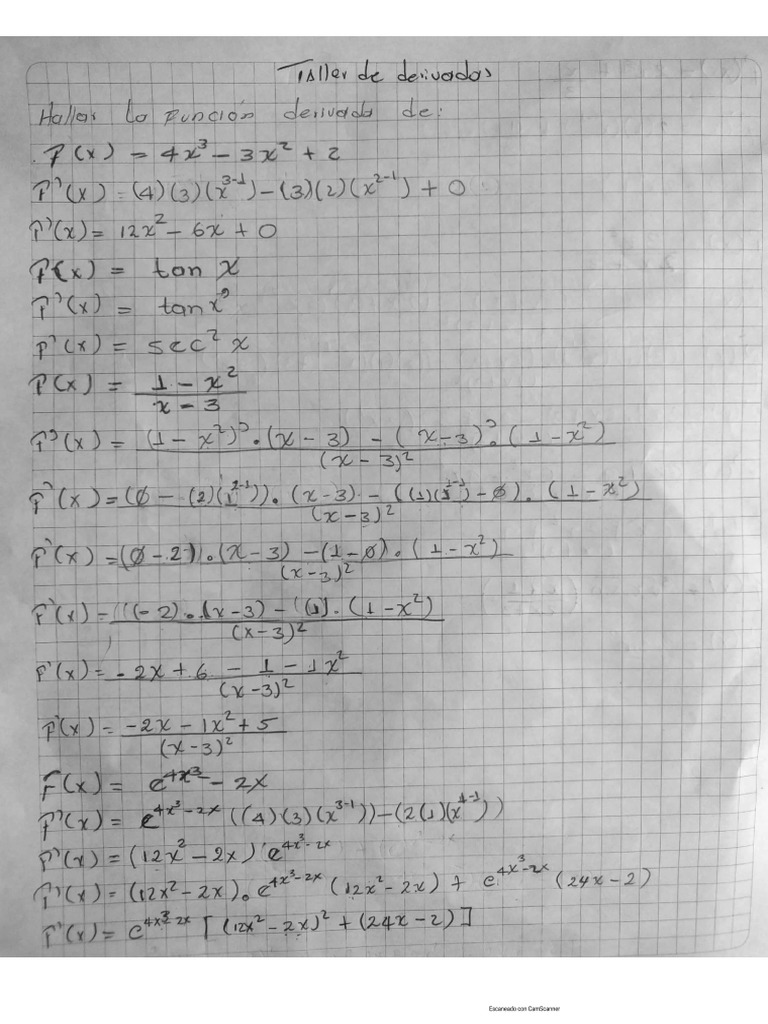 Taller de derivadas
Hallar la función derivada de:
F(x) = 4x³ - 3x² + 2
F'(x) = (4)(3)(x³⁻¹) - (3)(2)(x²⁻¹) + 0
F'(x) = 12x² - 6x + 0
F(x) = tan x
F'(x) = tan x'
F'(x) = sec² x
F(x) = 1 - x² / x - 3
F'(x) = (1 - x²)' · (x - 3) - (x - 3)' · (1 - x²) / (x - 3)²
F'(x) = (0 - (2)(1²⁻¹)) · (x - 3) - ((1)(1¹⁻¹) - 0) · (1 - x²) / (x - 3)²
F'(x) = (0 - 2) · (x - 3) - (1 - 0) · (1 - x²) / (x - 3)²
F'(x) = ((-2) · (x - 3) - (1) · (1 - x²) / (x - 3)²
F'(x) = - 2x + 6 - 1 - 1x² / (x - 3)²
F'(x) = -2x - 1x² + 5 / (x - 3)²
F(x) = e⁴ˣ³ - 2x
F'(x) = e⁴ˣ³⁻²ˣ ((4)(3)(x³⁻¹)) - (2(1)(x¹⁻¹))
F'(x) = (12x² - 2x) e⁴ˣ³⁻²ˣ
F'(x) = (12x² - 2x) · e⁴ˣ³⁻²ˣ (12x² - 2x) + e⁴ˣ³⁻²ˣ (24x - 2)
F'(x) = e⁴ˣ³⁻²ˣ [(12x² - 2x)² + (24x - 2)]
Escaneado con CamScanner